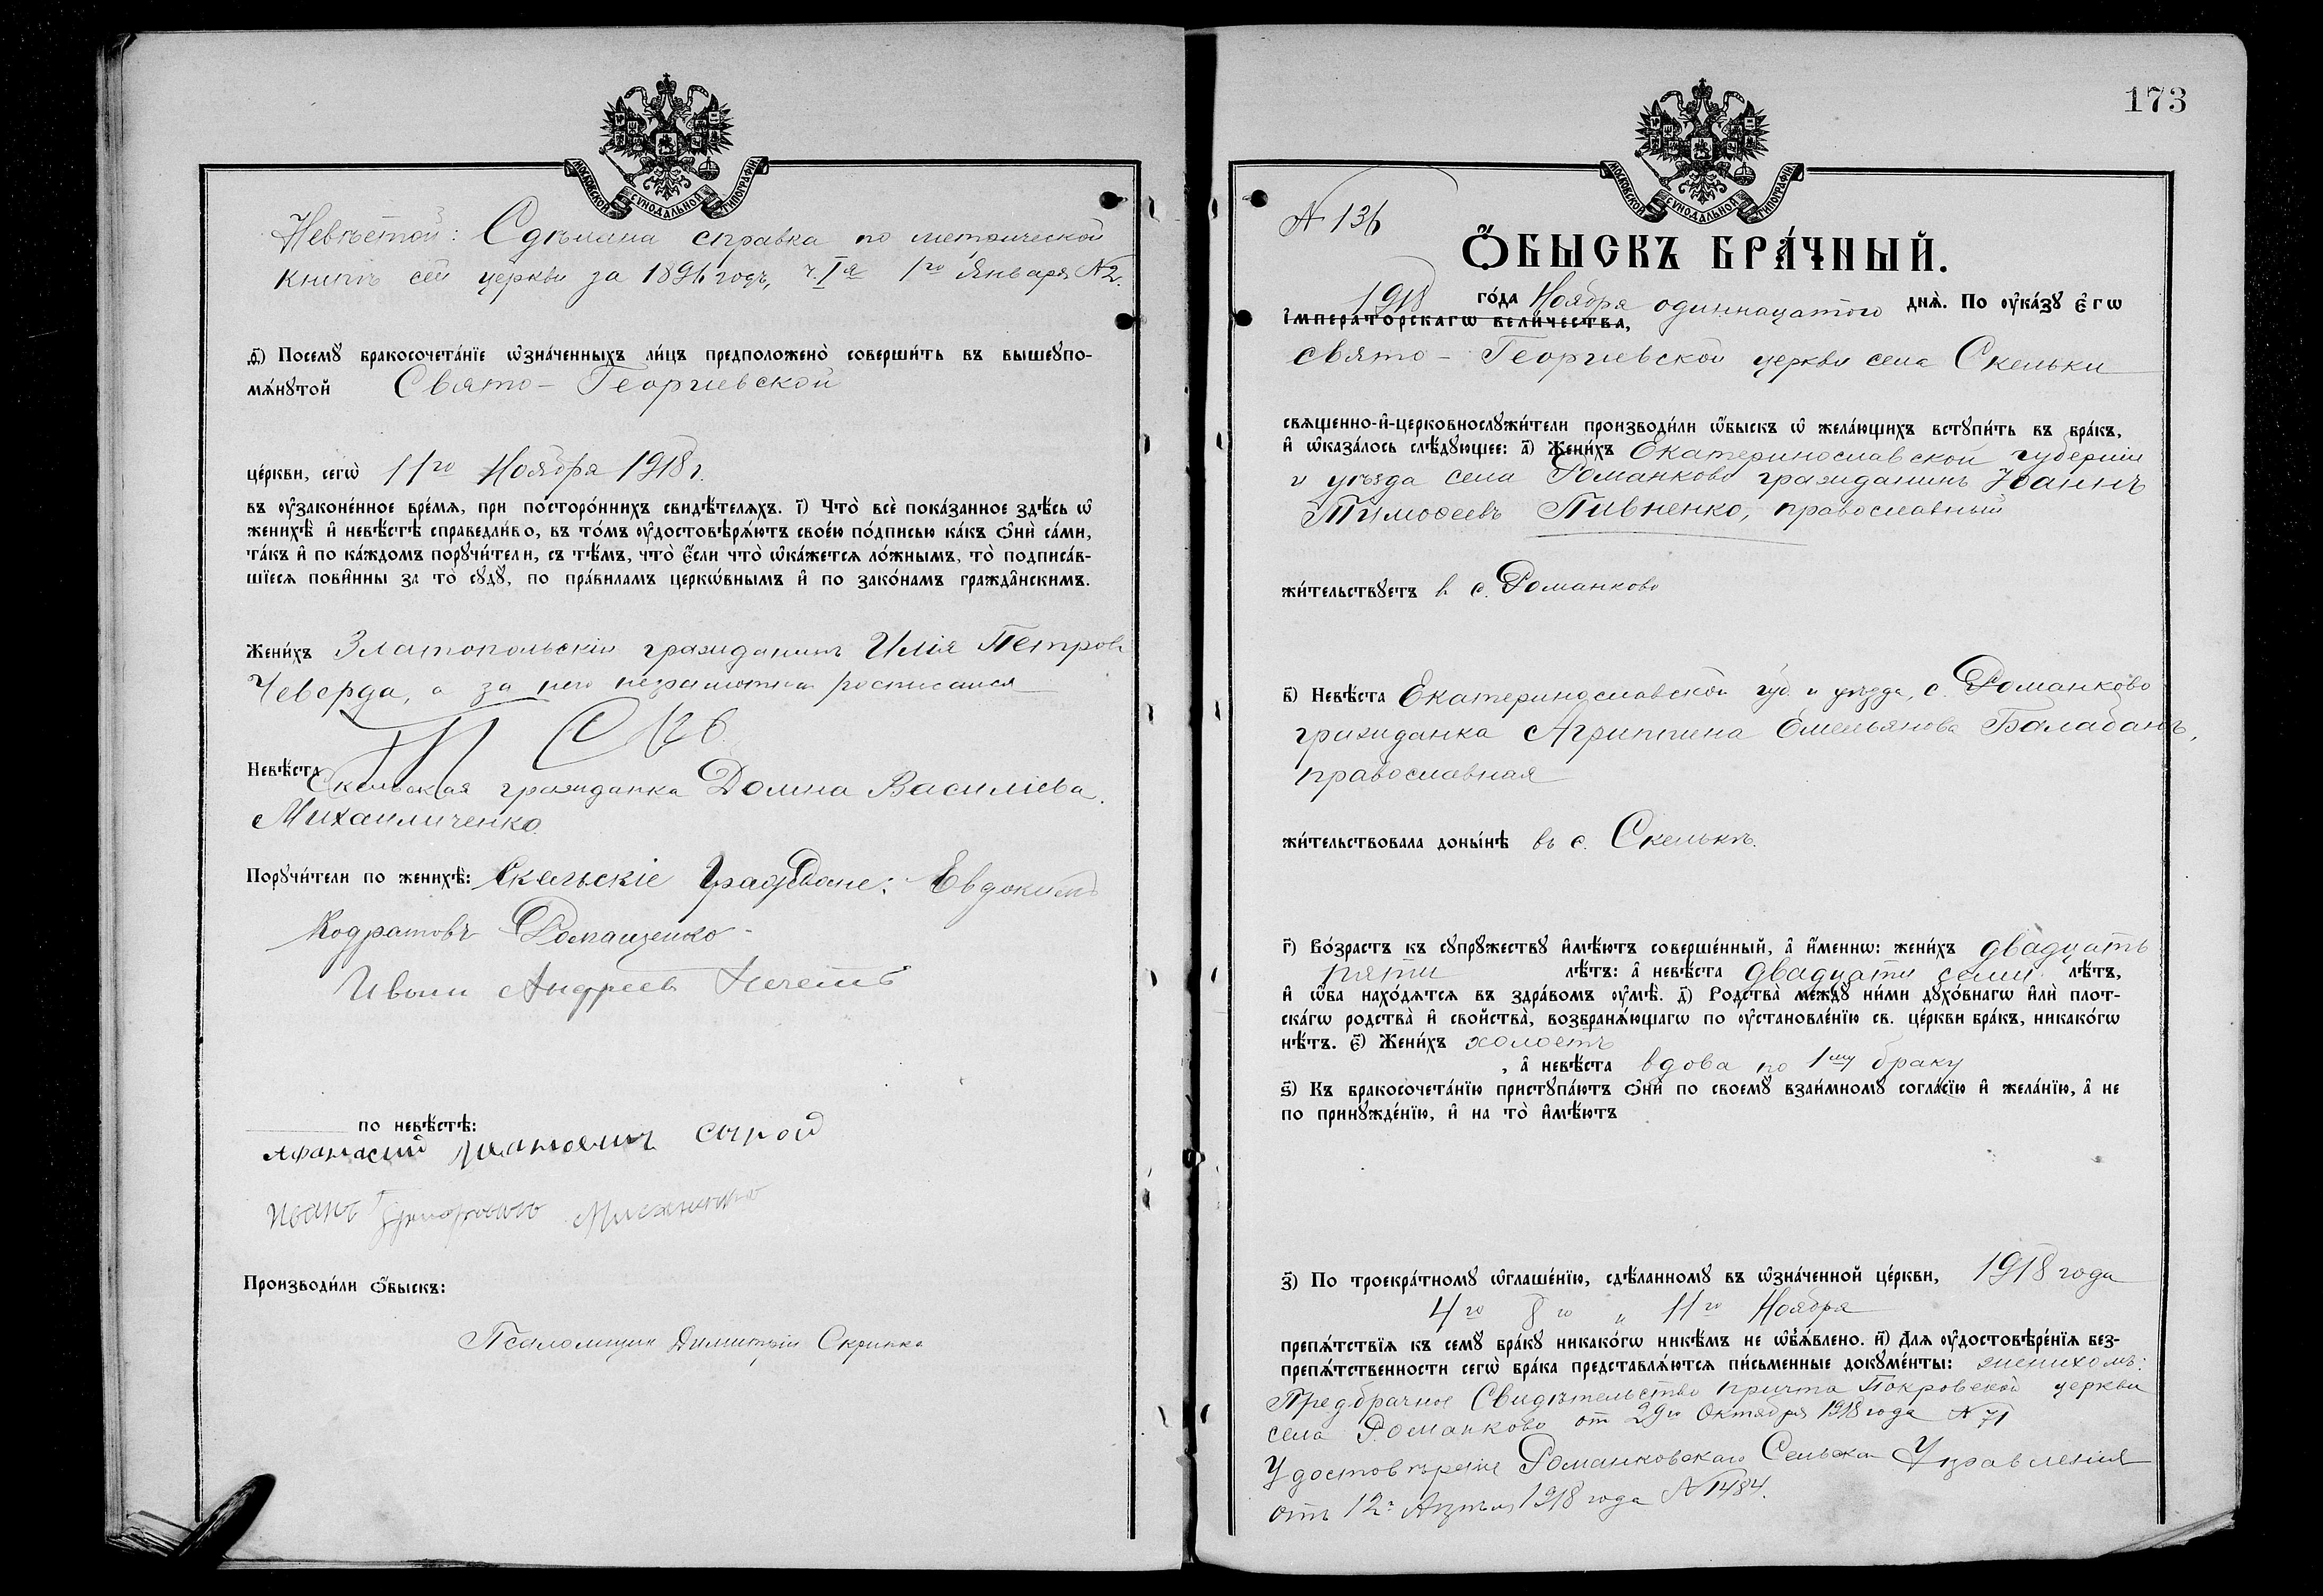 МОСКОВСКОЙ СѴНОДАЛЬНОЙ ТИПОГРАФІИ
Невѣстой: Сдѣлана справка по метрической
книгѣ сей церкви за 1896 годъ, ч. Iя 1го Января №2.
Посемꙋ бракосочета́нїе ѡзна́ченныхъ ли́цъ предположено̀ соверши́ть въ вышеупо-
мѧ́нꙋтой Свято-Георгіевской
це́ркви, сегѡ̀ 11го Ноября 1918 г.
въ ᲂу҆законе́нное вре́мѧ, при посторо́ннихъ свидѣ́телѧхъ. і҃) Что̀ всѐ пока́занное здѣ́сь ѡ҆
женихѣ̀ и҆ невѣ́стѣ справедли́во, въ то́мъ ᲂу҆достовѣрѧ́ютъ свое́ю по́дписью ка́къ ѻ҆нѝ са́ми,
та́къ и҆ по ка́ждомъ порꙋчи́тели, съ тѣ́мъ, что̀ є҆́сли что̀ ѡ҆ка́жется ло́жнымъ, то̀ подписа́в-
шїесѧ пови́нны за то̀ сꙋдꙋ̀, по пра́виламъ церкѡ́внымъ и҆ по зако́намъ гражда̂нскимъ.
Жени́хъ Златопольскій гражданинъ Илія Петровъ
Чеверда, а за него неграмотнаго росписался
Невѣ́ста
Скельская гражданка Домна Василіева
Михаиличенко
Порꙋчи́тели по женихѣ̀: Скельскіе Граждане: Евдокимъ
Кодратовъ Ромащенко
Ивонъ Андреевъ
по невѣ́стѣ:
Афанасий Сырой
Иванъ
Производи́ли ѻ҆́быскъ:
Псаломщикъ Димитрій Скрипка
173
МОСКОВСКОЙ СѴНОДАЛЬНОЙ ТИПОГРАФІИ
№ 136
Ѻ҆́БЫСКЪ БРА́ЧНЫЙ.
1918 го́да Ноября одиннацатого днѧ̀. По ᲂу҆ка́зꙋ є҆гѡ̀
і҆мпера́торскагѡ вели́чества,
Свято-Георгіевской церкви села Скельки
свѧщенно-и҆-церковнослꙋжи́тели производи́ли ѻ҆́быскъ ѡ҆ жела́ющихъ встꙋпи́ть въ бра́къ,
и҆ ѡ҆каза́лось слѣ́дꙋющее: а҃) Жени́хъ Екатеринославской губерніи
и уѣзда села Романково гражданинъ Іоаннъ
Тимофеевъ Пивненко, православный
жи́тельствꙋетъ в с. Романково
в҃) Невѣ́ста Екатеринославской губ. и уѣзда, с. Романково
гражданка Агриппина Емельянова Балабанъ,
православная
жи́тельствовала доны́нѣ въ с. Скелькѣ.
г҃) Во́зрастъ къ сꙋпрꙋ́жествꙋ и҆мѣ́ютъ соверше́нный, а҆ и҆́меннѡ: жени́хъ двадцать
пяти лѣ́тъ: а҆ невѣ́ста двадцати семи лѣ́тъ,
и҆ ѻ҆́ба нахо́дѧтсѧ въ здра́вомъ ᲂу҆мѣ̀. д҃) Родства̀ междꙋ̀ ни́ми дꙋхо́внагѡ и҆лѝ плот-
ска́гѡ родства̀ и҆ свойства̀, возбранѧ́ющагѡ по ᲂу҆становле́нїю св. це́ркви бра́къ, никако́гѡ
нѣ́тъ. є҃) Жени́хъ холостъ
, а҆ невѣ́ста вдова по 1му браку
ѕ҃) Къ бракосочета́нїю пристꙋпа́ютъ ѻ҆нѝ по своемꙋ̀ взаи́мномꙋ согла́сїю и҆ жела́нїю, а҆ не
по принꙋжде́нїю, и҆ на то̀ и҆мѣ́ютъ
з҃) По троекра́тномꙋ ѡ҆глаше́нїю, сдѣ́ланномꙋ въ ѡ҆зна́ченной це́ркви, 1918 года
4го 8го „ 11го Ноября
препѧ́тствїѧ къ семꙋ̀ бра́кꙋ никако́гѡ никѣ́мъ не ѡ҆б̾ѧ́влено. и҃) Длѧ ᲂу҆достовѣре́нїѧ без-
препѧ́тственности сегѡ̀ бра́ка представлѧ́ютсѧ пи́сьменные докꙋме́нты: женихомъ:
Предбрачное Свидѣтельство причта Покровской церкви
села Романково от 29го Октября 1918 года № 71
Удостовѣреніе Романковскаго Сельска Управленія
отъ 12го Апрѣля 1918 года № 1484.